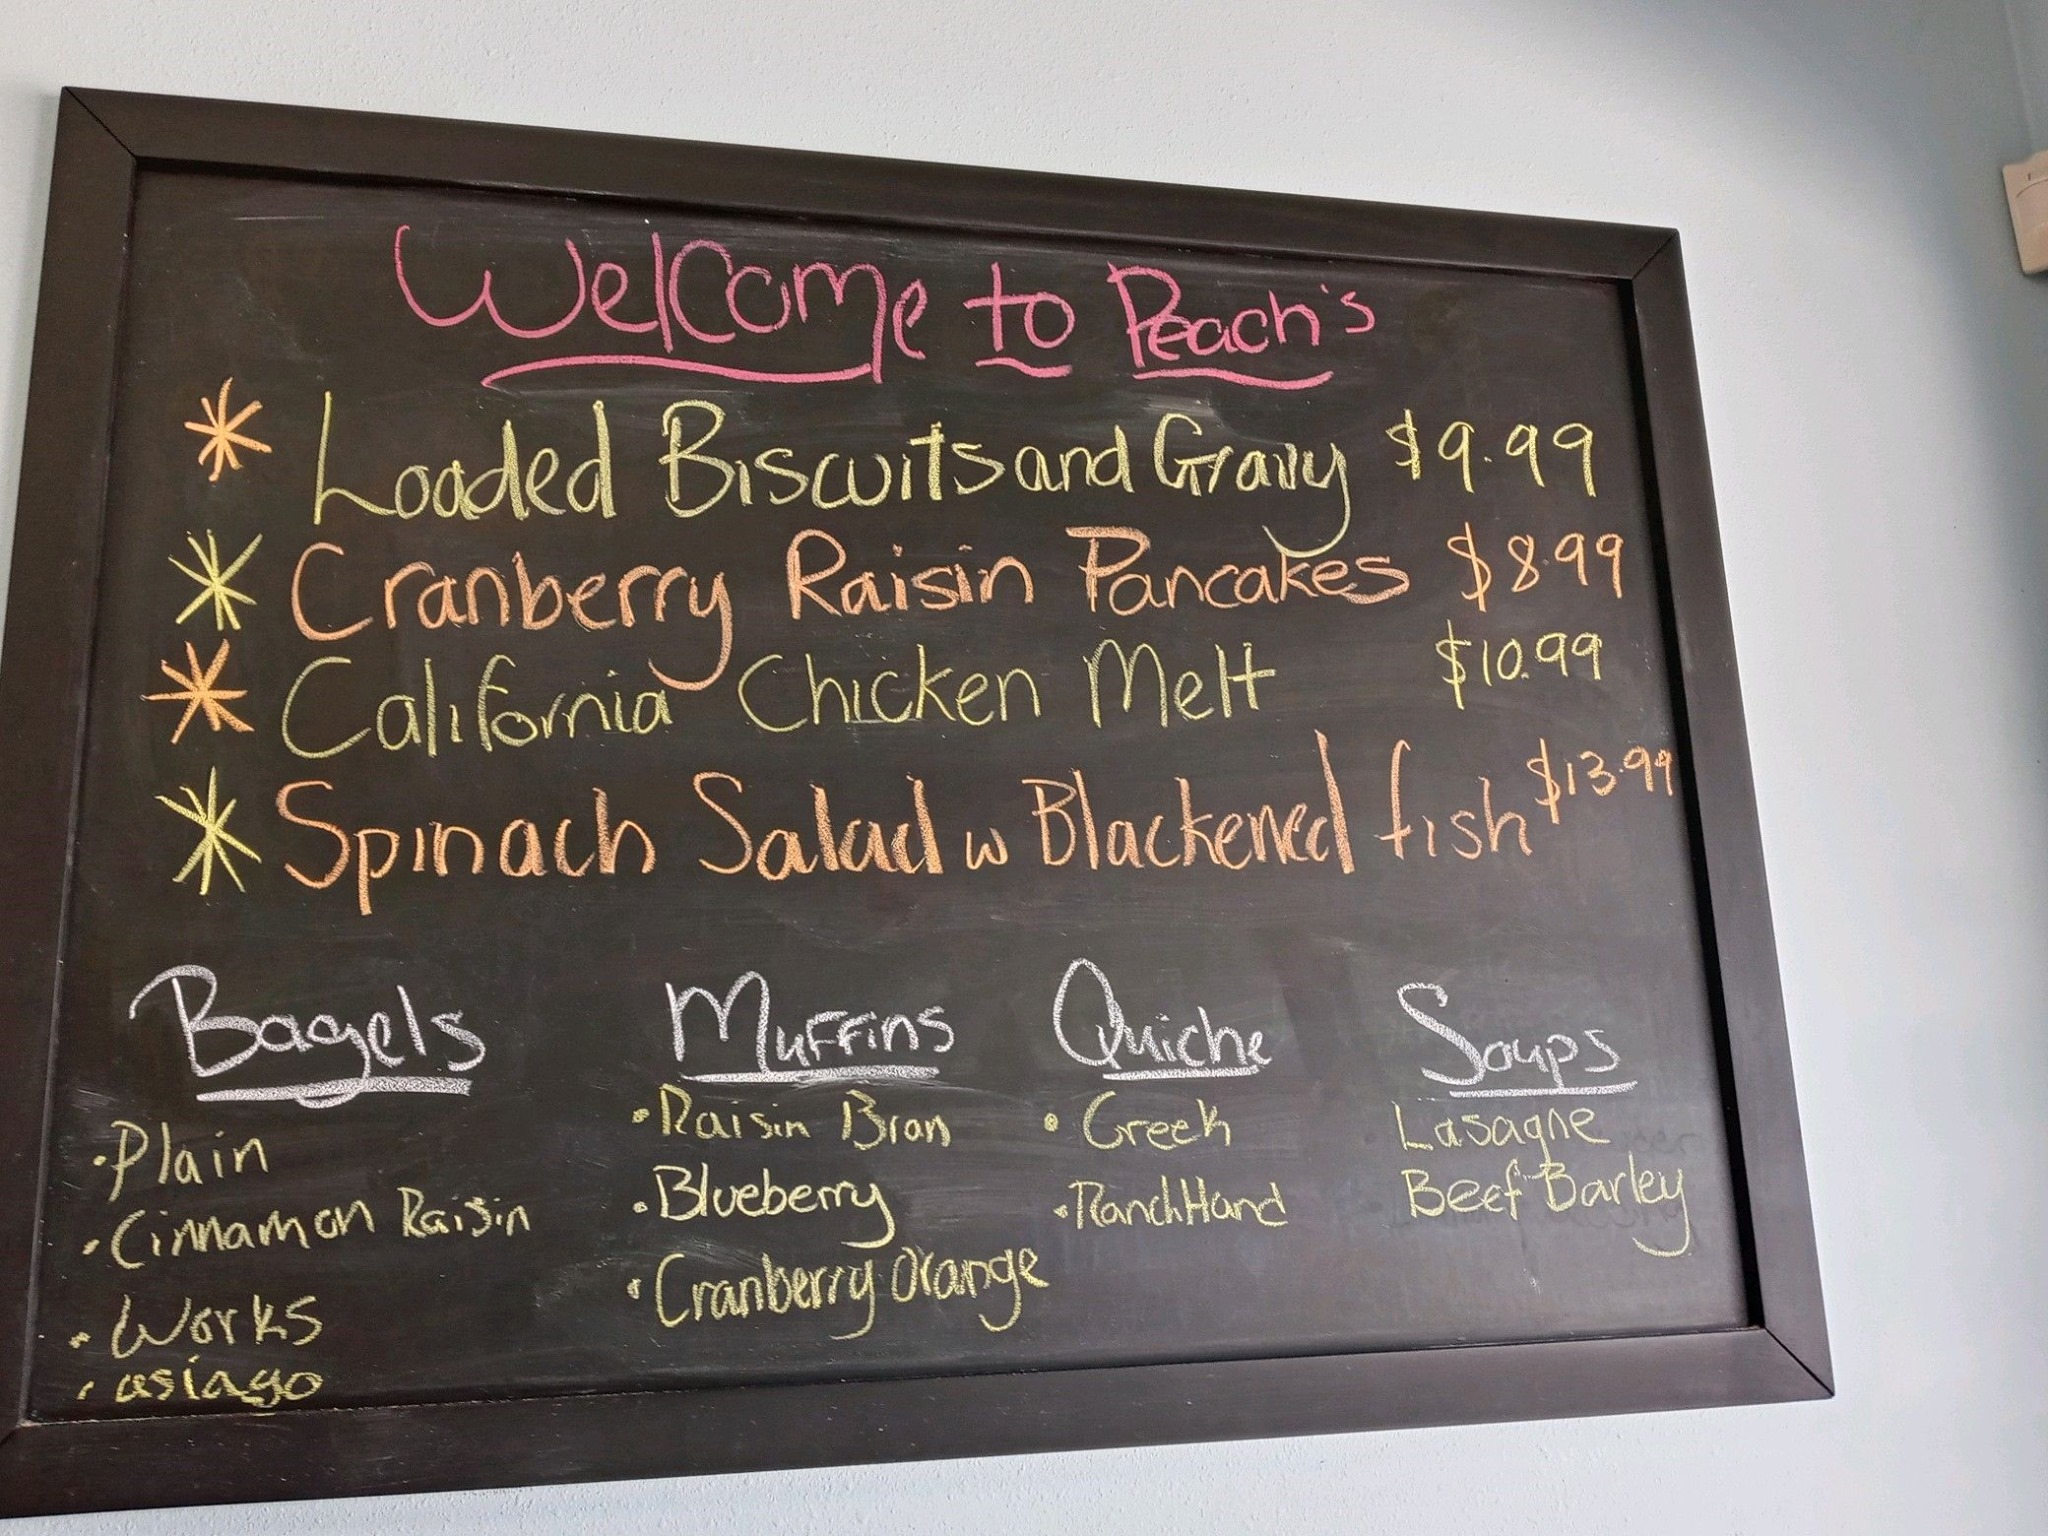 Welcome to Peach's
Loaded Biscuits and Gravy $9.99
Cranberry Raisin Pancakes $8.99
California Chicken Melt $10.99
Spinach Salad w Blackened fish $13.99
Bagels
• Plain
• Cinnamon Raisin
• Works
• asiago
Muffins
• Raisin Bran
• Blueberry
• Cranberry Orange
Quiche
• Greek
• Ranch Hand
Soups
Lasagne
Beef Barley